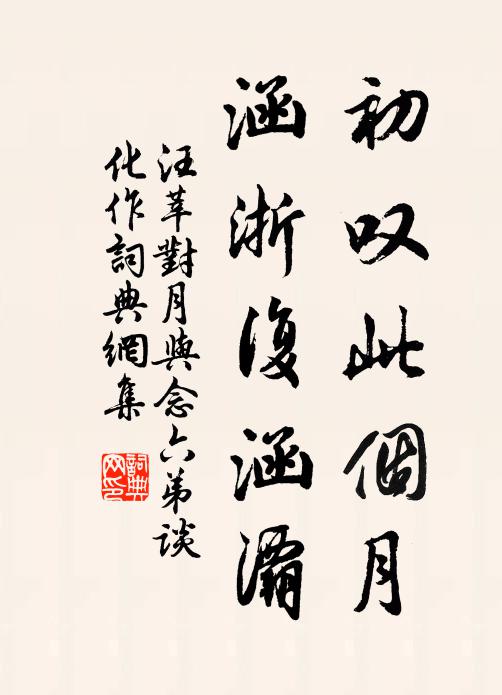 初叹此個月
涵浙復涵灞
汪莘對月與念六弟談
化作詞典網集
詞典网印